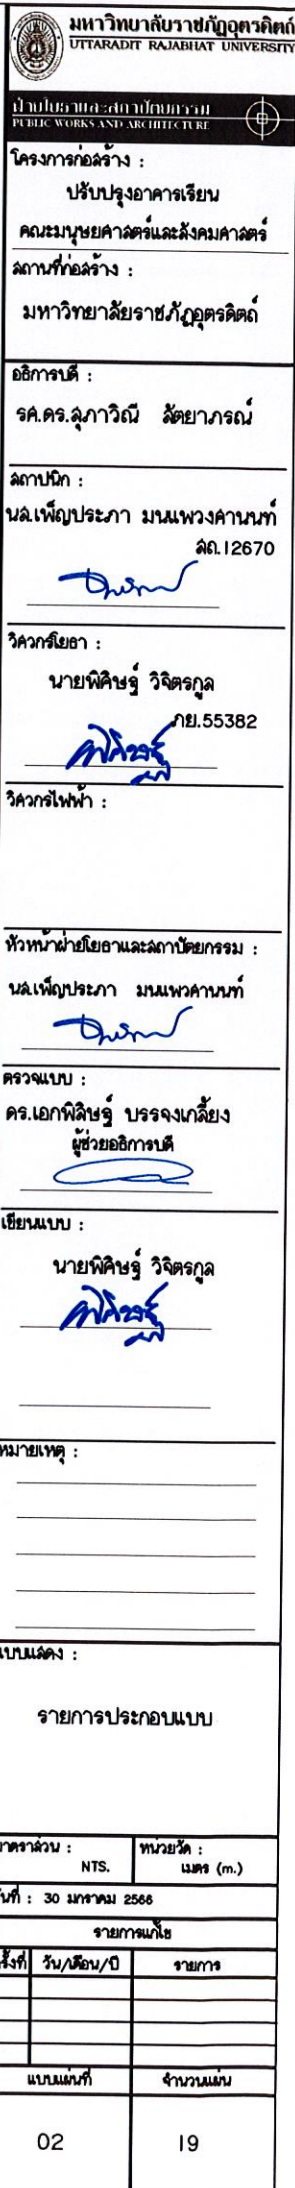 มหาวิทยาลัยราชภัฏอุตรดิตถ์
UTTARADIT RAJABHAT UNIVERSITY
ฝ่ายโยธาและสถาปัตยกรรม
PUBLIC WORKS AND ARCHITECTURE
โครงการก่อสร้าง :
ปรับปรุงอาคารเรียน
คณะมนุษยศาสตร์และสังคมศาสตร์
สถานที่ก่อสร้าง :
มหาวิทยาลัยราชภัฏอุตรดิตถ์
อธิการบดี :
รศ.ดร.สุภาวิณี สัตยาภรณ์
สถาปนิก :
นส.เพ็ญประภา มนแพวงศานนท์
สถ.12670
วิศวกรโยธา :
นายพิศิษฐ์ วิจิตรกูล
ภย.55382
วิศวกรไฟฟ้า :
หัวหน้าฝ่ายโยธาและสถาปัตยกรรม :
นส.เพ็ญประภา มนแพวศานนท์
ตรวจแบบ :
ดร.เอกพิสิษฐ์ บรรจงเกลี้ยง
ผู้ช่วยอธิการบดี
เขียนแบบ :
นายพิศิษฐ์ วิจิตรกูล
หมายเหตุ :
แบบแสดง :
รายการประกอบแบบ
มาตราส่วน : หน่วยวัด :
NTS. เมตร (m.)
วันที่ : 30 มกราคม 2566
รายการแก้ไข
ครั้งที่ วัน/เดือน/ปี รายการ
แบบแผ่นที่ จำนวนแผ่น
02 19